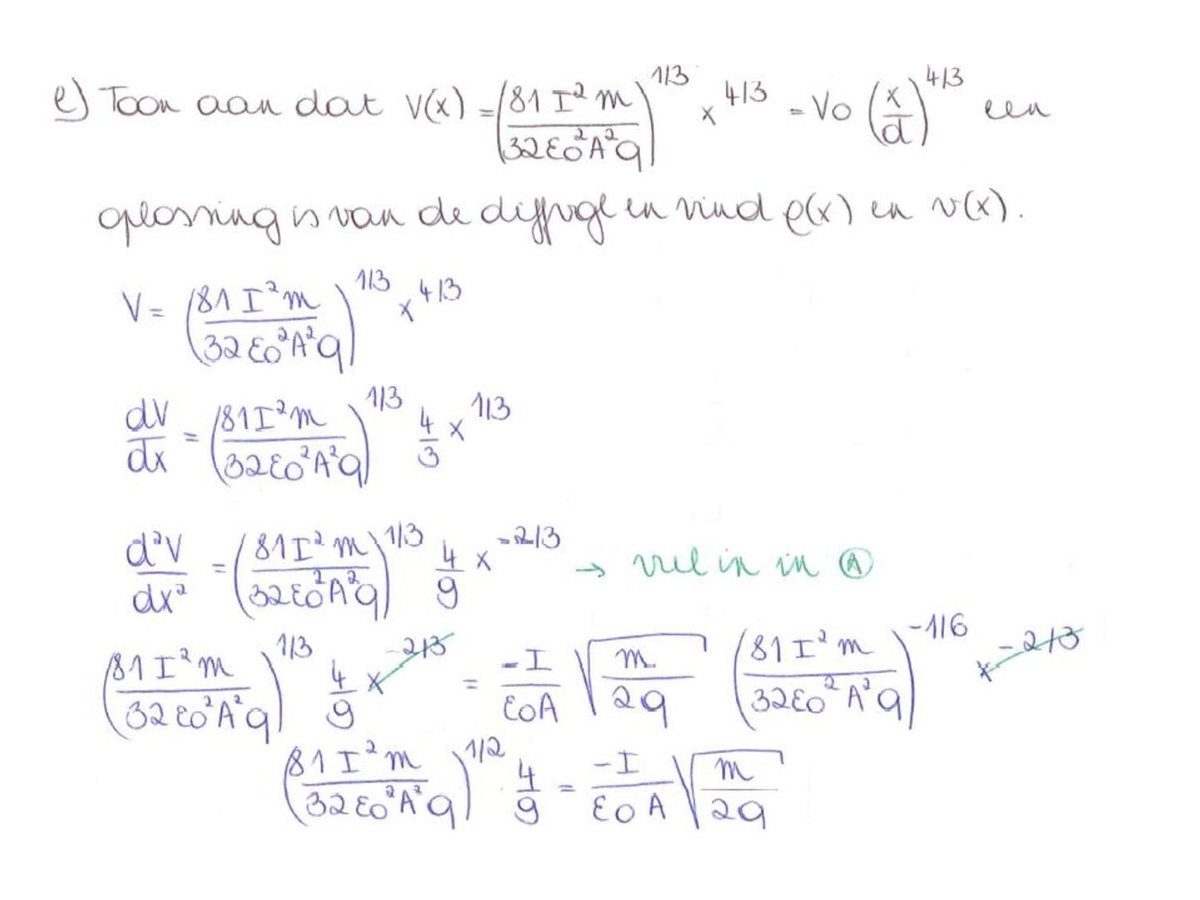 e) Toon aan dat V(x) = (81 I² m / 32 ε0² A² q)^1/3 x^4/3 = V0 (x/d)^4/3 een
oplossing is van de diffvgl en vind ρ(x) en v(x).
V = (81 I² m / 32 ε0² A² q)^1/3 x^4/3
dV/dx = (81 I² m / 32 ε0² A² q)^1/3 4/3 x^1/3
d²V/dx² = (81 I² m / 32 ε0² A² q)^1/3 4/9 x^-2/3 → vul in in Ⓐ
(81 I² m / 32 ε0² A² q)^1/3 4/9 x^-2/3 = -I/ε0A √(m/2q) (81 I² m / 32 ε0² A² q)^-1/6 x^-2/3
(81 I² m / 32 ε0² A² q)^1/2 4/9 = -I/ε0 A √(m/2q)